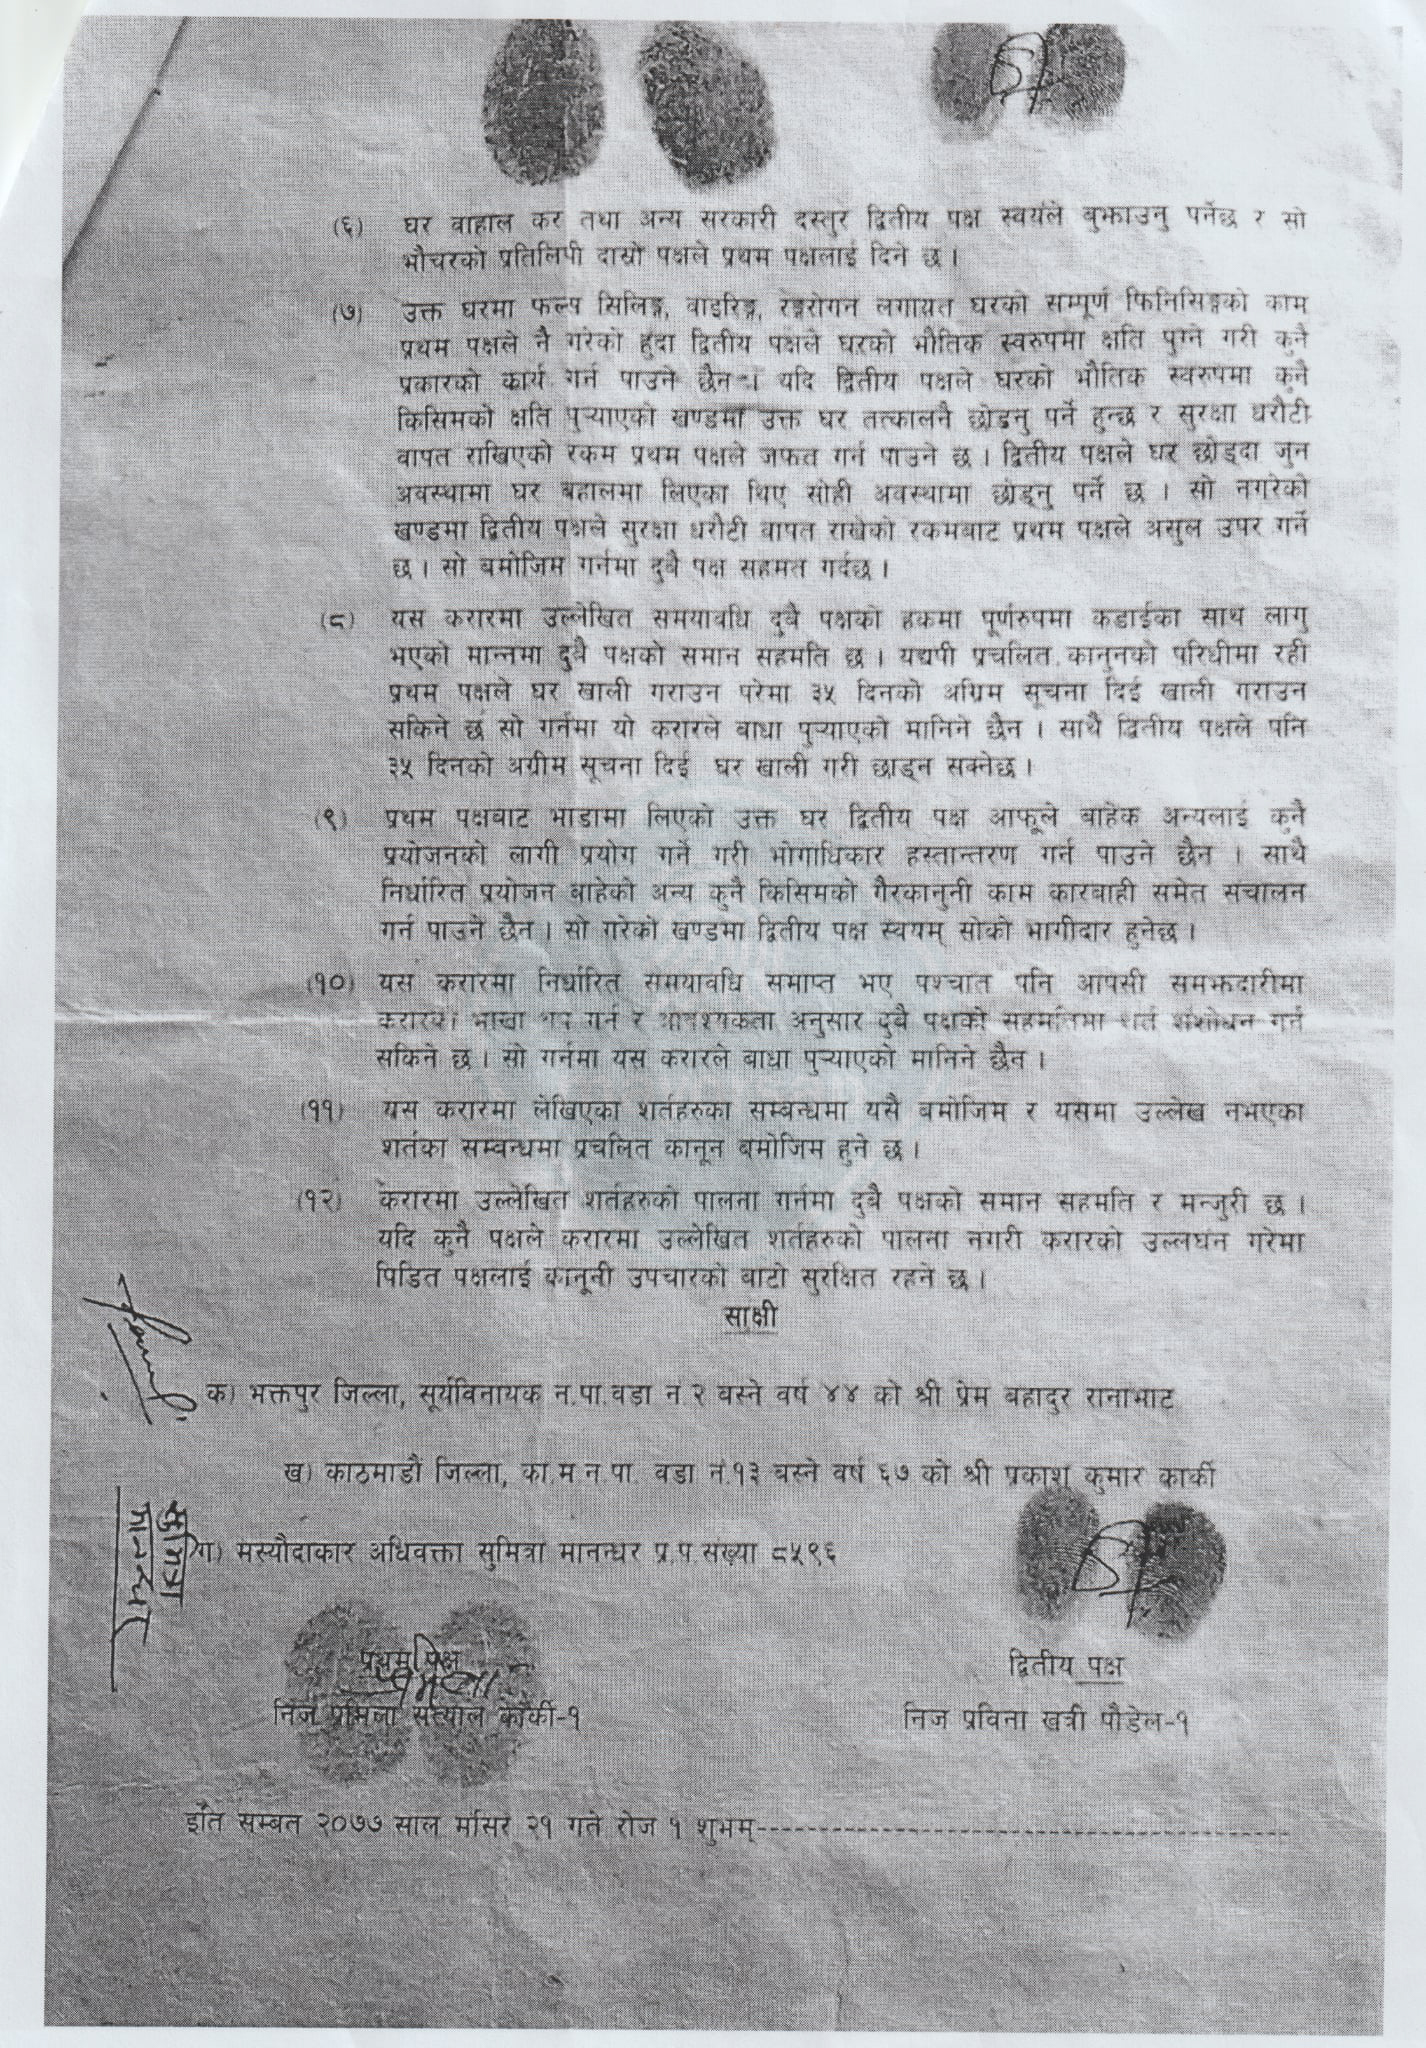 (६) घर वाहाल कर तथा अन्य सरकारी दस्तुर द्वितीय पक्ष स्वयंले बुझाउनु पर्नेछ र सो
भौचरको प्रतिलिपी दोस्रो पक्षले प्रथम पक्षलाई दिने छ ।
(७) उक्त घरमा फल्प सिलिङ्ग, वाइरिङ्ग, रङ्गरोगन लगायत घरको सम्पूर्ण फिनिसिङ्गको काम
प्रथम पक्षले नै गरेको हुंदा द्वितीय पक्षले घरको भौतिक स्वरुपमा क्षति पुग्ने गरी कुनै
प्रकारको कार्य गर्न पाउने छैन । यदि द्वितीय पक्षले घरको भौतिक स्वरुपमा कुनै
किसिमको क्षति पुर्‍याएको खण्डमा उक्त घर तत्कालनै छोडनु पर्ने हुन्छ र सुरक्षा धरौटी
वापत राखिएको रकम प्रथम पक्षले जफत गर्न पाउने छ । द्वितीय पक्षले घर छोड्दा जुन
अवस्थामा घर बहालमा लिएका थिए सोही अवस्थामा छोड्नु पर्ने छ । सो नगरेको
खण्डमा द्वितीय पक्षले सुरक्षा धरौटी वापत राखेको रकमबाट प्रथम पक्षले असुल उपर गर्ने
छ । सो बमोजिम गर्नमा दुबै पक्ष सहमत गर्दछ ।
(८) यस करारमा उल्लेखित समयावधि दुबै पक्षको हकमा पूर्णरुपमा कडाईका साथ लागु
भएको मान्नमा दुबै पक्षको समान सहमति छ । यद्यपी प्रचलित कानुनको परिधीमा रही
प्रथम पक्षले घर खाली गराउन परेमा ३५ दिनको अग्रिम सूचना दिई खाली गराउन
सकिने छ सो गर्नमा यो करारले बाधा पुर्‍याएको मानिने छैन । साथै द्वितीय पक्षले पनि
३५ दिनको अग्रीम सूचना दिई घर खाली गरी छाड्न सक्नेछ ।
(९) प्रथम पक्षबाट भाडामा लिएको उक्त घर द्वितीय पक्ष आफूले बाहेक अन्यलाई कुनै
प्रयोजनको लागी प्रयोग गर्ने गरी भोगाधिकार हस्तान्तरण गर्न पाउने छैन । साथै
निर्धारित प्रयोजन बाहेको अन्य कुनै किसिमको गैरकानुनी काम कारबाही समेत संचालन
गर्न पाउने छैन । सो गरेको खण्डमा द्वितीय पक्ष स्वयम् सोको भागीदार हुनेछ ।
(१०) यस करारमा निर्धारित समयावधि समाप्त भए पश्चात पनि आपसी समझदारीमा
करारको भाखा थप गर्न र आवश्यकता अनुसार दुबै पक्षको सहमतिमा शर्त संशोधन गर्न
सकिने छ । सो गर्नमा यस करारले बाधा पुर्‍याएको मानिने छैन ।
(११) यस करारमा लेखिएका शर्तहरुका सम्बन्धमा यसै बमोजिम र यसमा उल्लेख नभएका
शर्तका सम्बन्धमा प्रचलित कानून बमोजिम हुने छ ।
(१२) करारमा उल्लेखित शर्तहरुको पालना गर्नमा दुबै पक्षको समान सहमति र मन्जुरी छ ।
यदि कुनै पक्षले करारमा उल्लेखित शर्तहरुको पालना नगरी करारको उल्लघंन गरेमा
पिडित पक्षलाई कानूनी उपचारको बाटो सुरक्षित रहने छ ।
साक्षी
क) भक्तपुर जिल्ला, सूर्यविनायक न.पा.वडा नं २ बस्ने वर्ष ४४ को श्री प्रेम बहादुर रानाभाट
ख) काठमाडौं जिल्ला, का.म.न.पा. वडा नं.१३ बस्ने वर्ष ६७ को श्री प्रकाश कुमार कार्की
ग) मस्यौदाकार अधिवक्ता सुमित्रा मानन्धर प्र.प.संख्या ८५९६
सुमित्रा
मानन्धर
प्रथम पक्ष
द्वितीय पक्ष
निज प्रमिला सत्याल कार्की-१
निज प्रविना खत्री पौडेल-१
इति सम्बत २०७७ साल मंसिर २१ गते रोज १ शुभम्-------------------------------------------